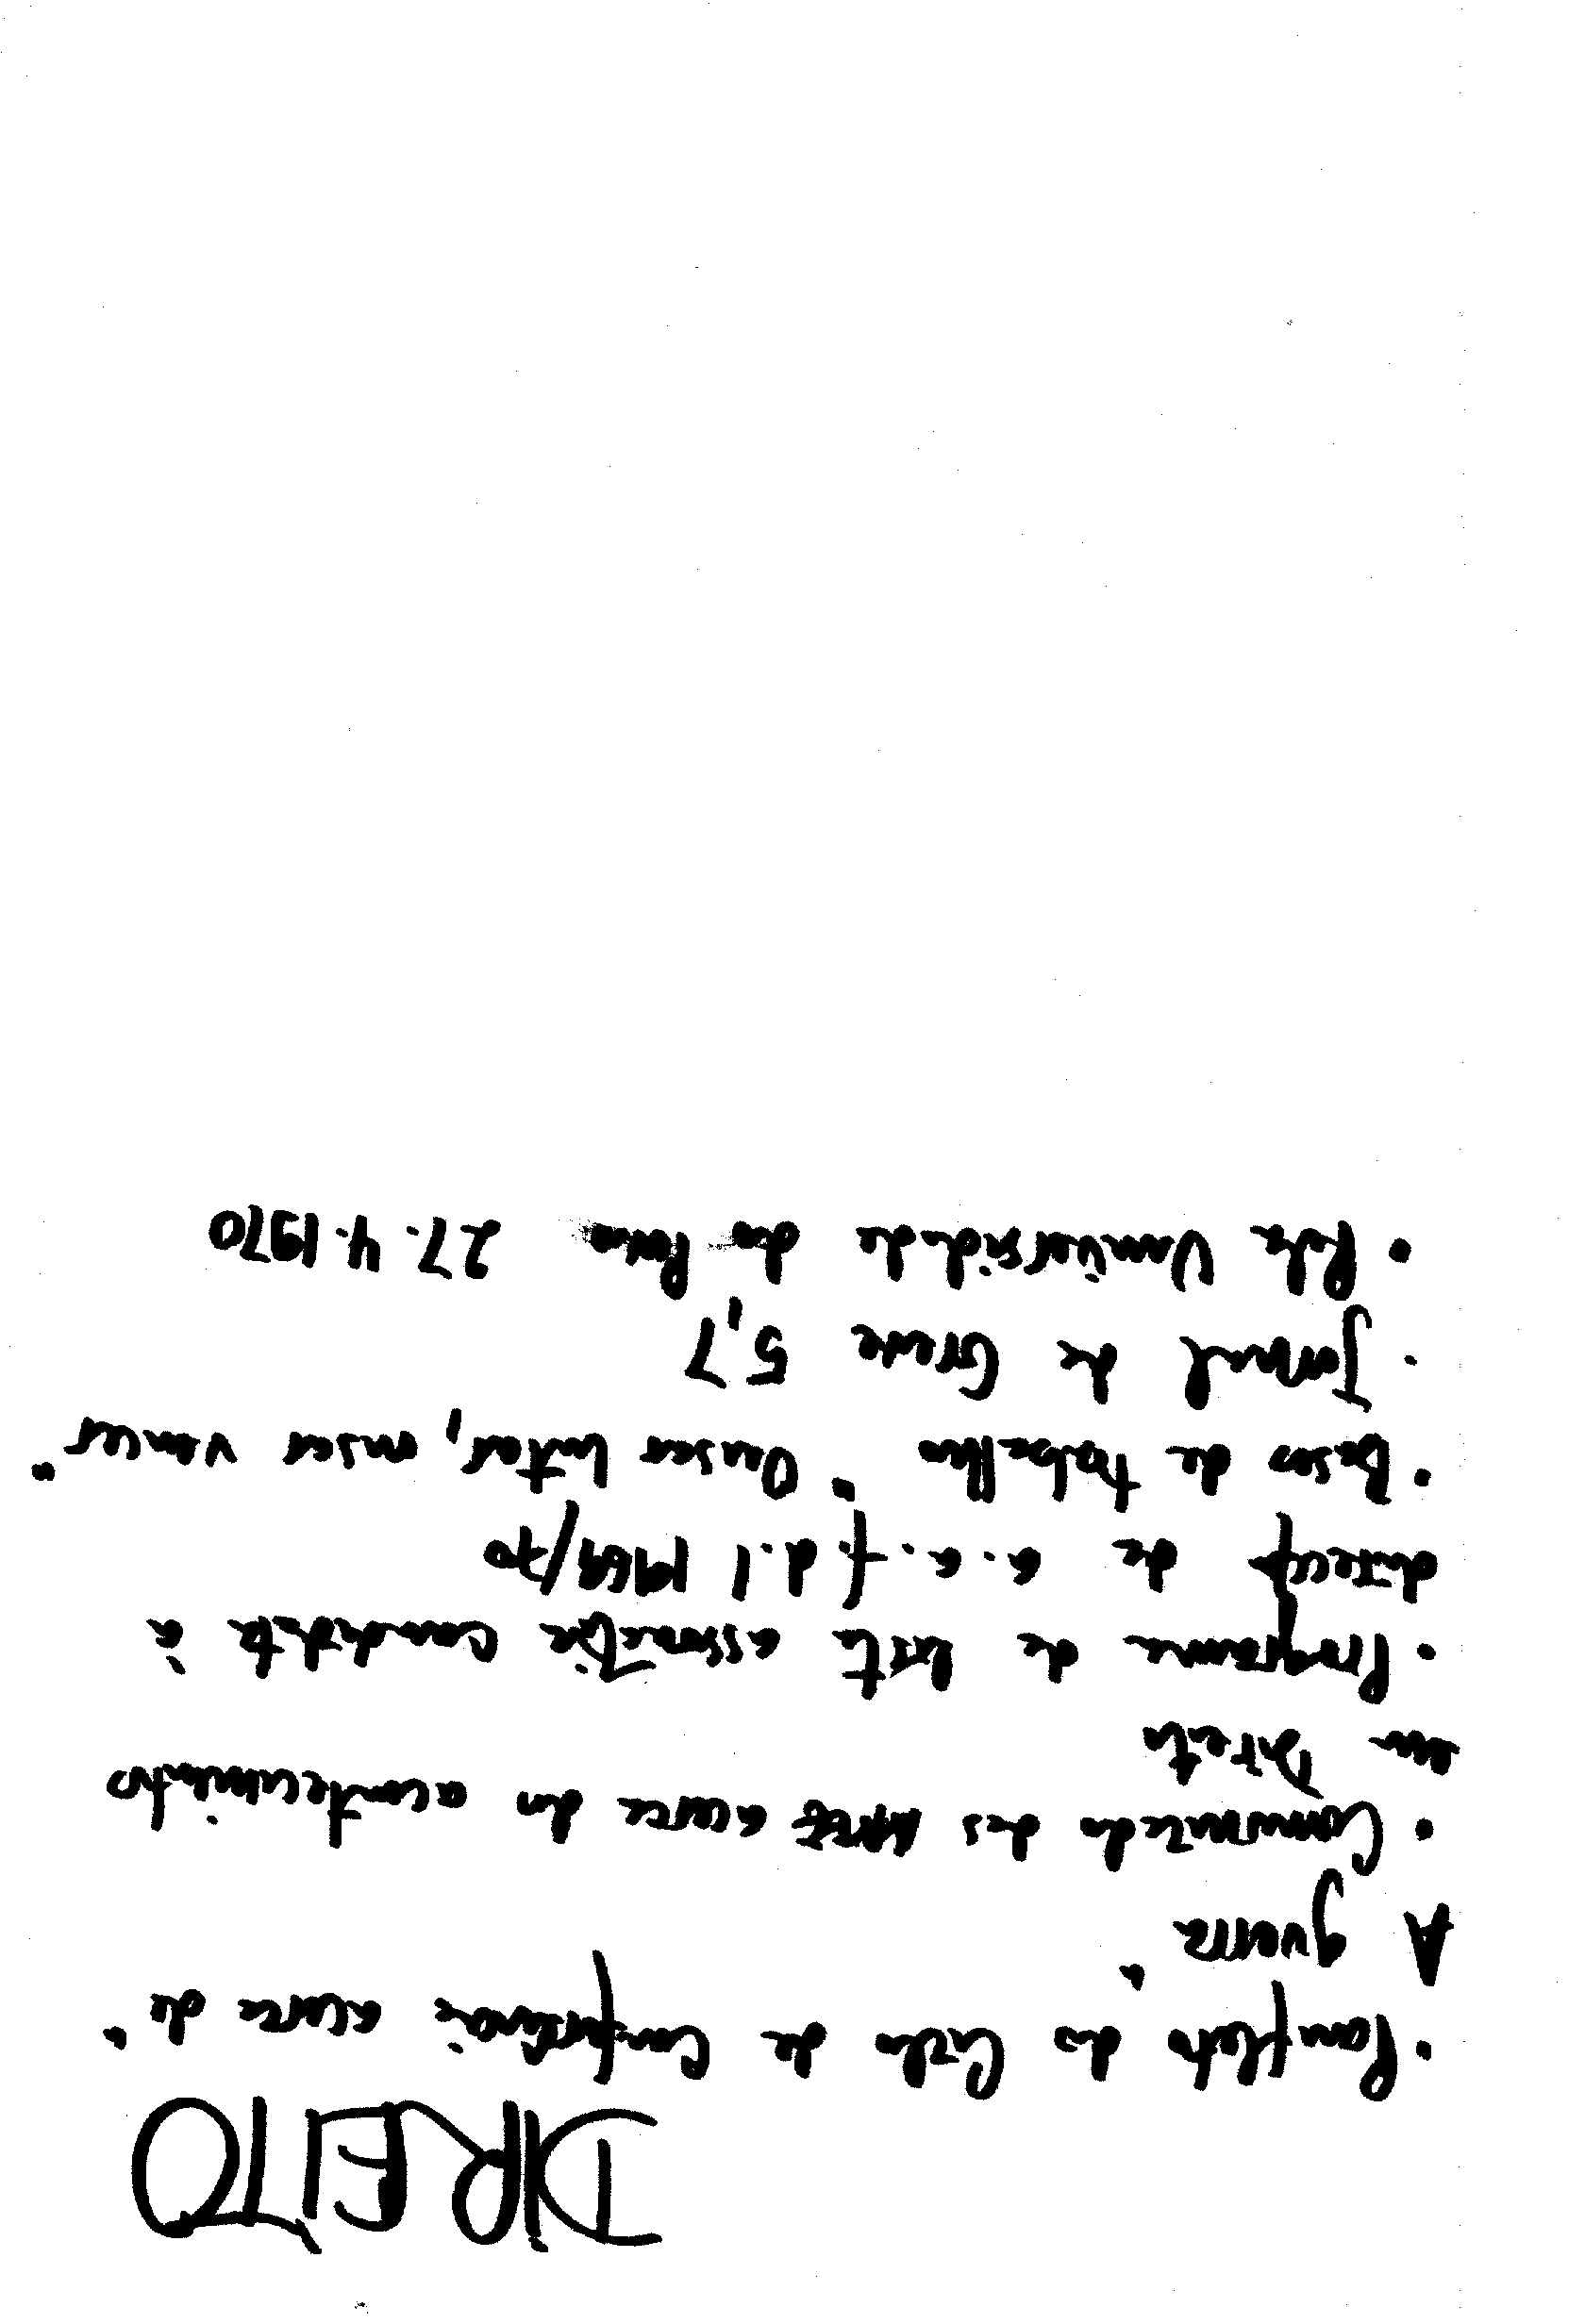 DIREITO
. Panfleto do Ciclo de Conferências acerca de "
A guerra "
. Comunicado das acerca do acontecimento
em Direito
. Programa da lista associativa candidata à
direcção da a. a. f. d. l 1969/70
. Bases de trabalho " Ousar lutar, ousar vencer "
. Jornal da Greve 5,7
. Pela Universidade do Povo 27. 4. 1970